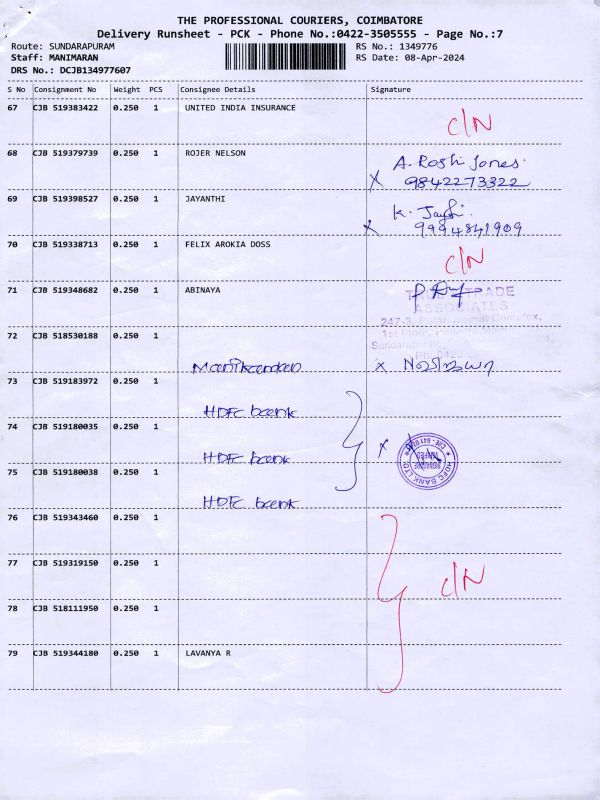 THE PROFESSIONAL COURIERS, COIMBATORE
Delivery Runsheet - PCK - Phone No.:0422-3505555 - Page No.:7
Route: SUNDARAPURAM
RS No.: 1349776
Staff: MANIMARAN
RS Date: 08-Apr-2024
DRS No.: DCJB134977607
S No Consignment No Weight PCS Consignee Details Signature
67 CJB 519383422 0.250 1 UNITED INDIA INSURANCE
C/N
68 CJB 519379739 0.250 1 ROJER NELSON
X 9842273322
69 CJB 519398527 0.250 1 JAYANTHI
X 9994841909
70 CJB 519338713 0.250 1 FELIX AROKIA DOSS
C/N
71 CJB 519348682 0.250 1 ABINAYA
TRADE
ASSOCIATES
72 CJB 518530188 0.250 1
Manikandan X
73 CJB 519183972 0.250 1
HDFC bank
74 CJB 519180035 0.250 1
X
HDFC bank
HDFC BANK LTD
75 CJB 519180038 0.250 1
HDFC bank
76 CJB 519343460 0.250 1
77 CJB 519319150 0.250 1
C/N
78 CJB 518111950 0.250 1
79 CJB 519344180 0.250 1 LAVANYA R